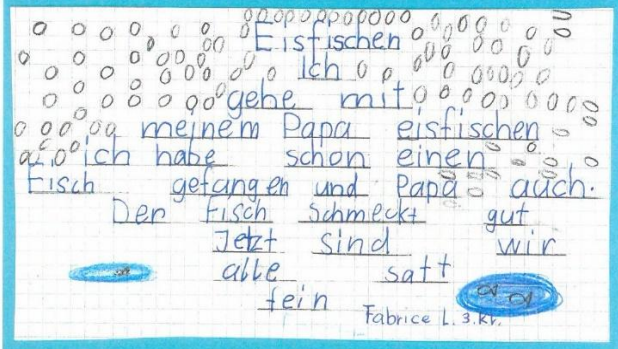 Eisfischen
Ich
gehe mit
meinem Papa eisfischen
ich habe schon einen
Fisch gefangen und Papa auch.
Der Fisch schmeckt gut
Jetzt sind wir
alle satt
fein
Fabrice L. 3.Kl.